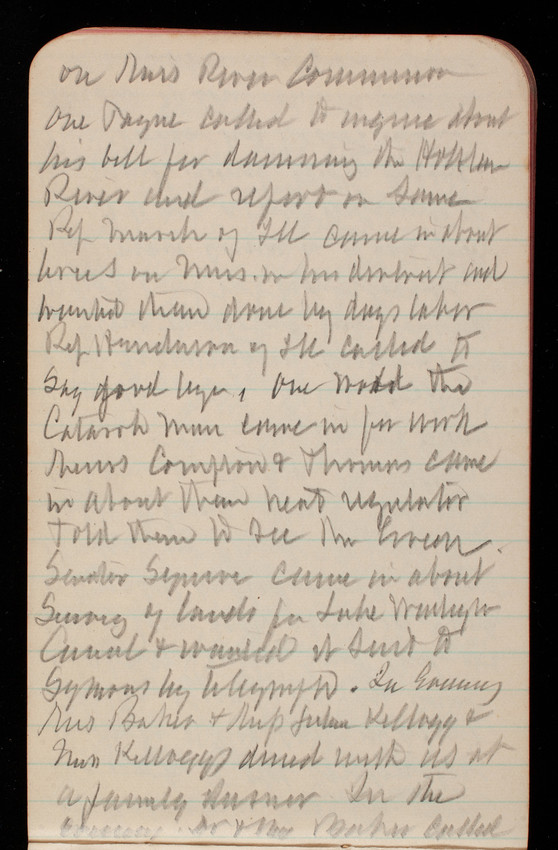 on Miss River Commission
One Payne called to inquire about
his bill for damming the
River and report on same
Rep Marsh of Ill came in about
levees on Miss. in his district and
wanted them done by days labor
Rep Henderson of Ill called to
say good bye, one Todd the
Catarrh man came in for work
Messrs Compton & Thomas came
in about their heat regulator
told them to see Mr Green.
Senator Squire came in about
Survey of lands for Lake Washington
Canal & wanted it sent to
Symons by telegraph. In Evening
Mrs Baker & Miss Kellogg &
Kellogg dined with us at
a family dinner In the
evening Dr & Mrs Parker called